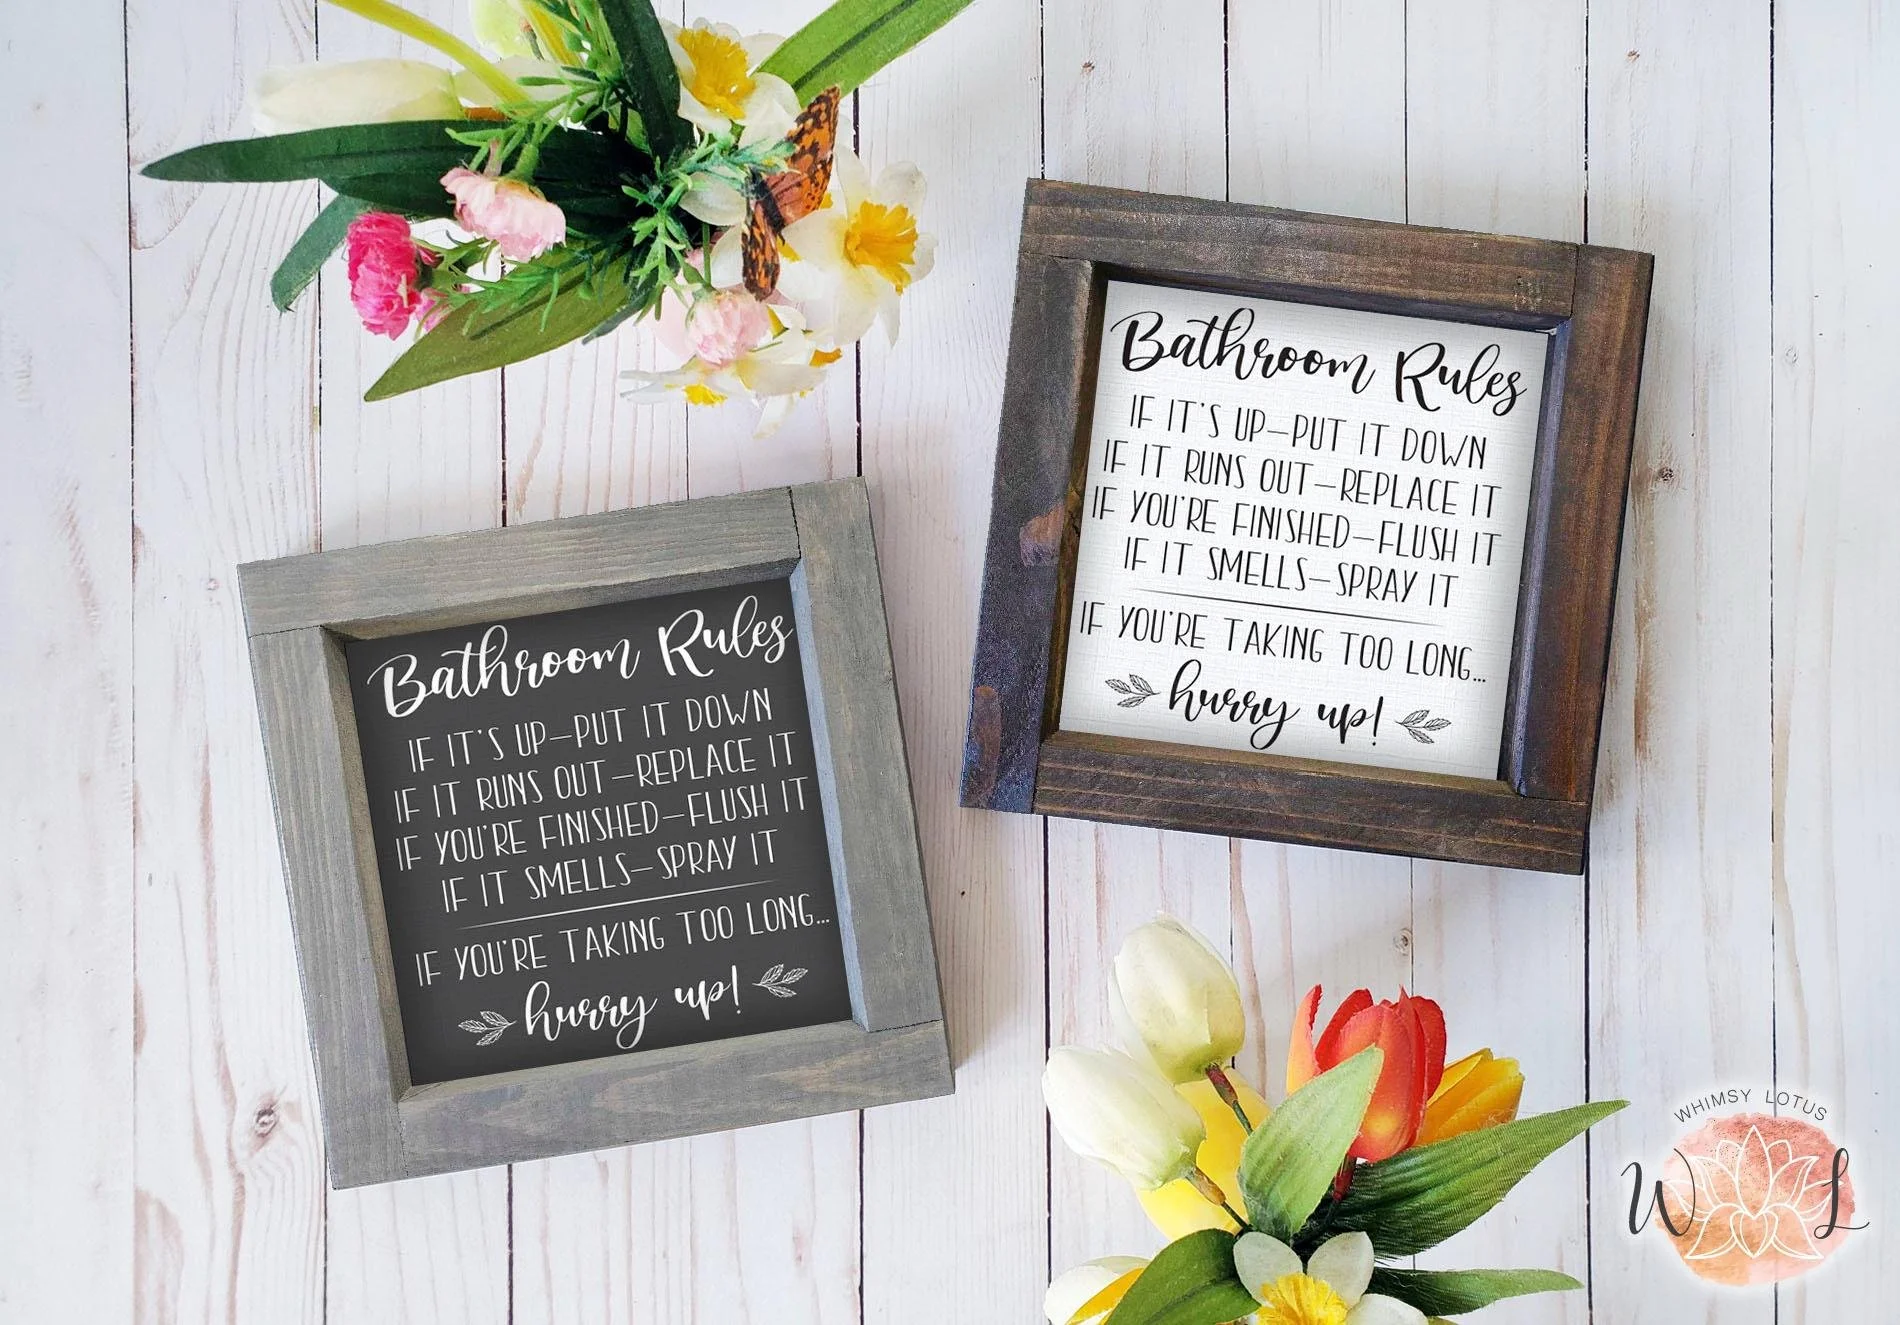 Bathroom Rules
IF IT'S UP–PUT IT DOWN
IF IT RUNS OUT–REPLACE IT
IF YOU'RE FINISHED–FLUSH IT
IF IT SMELLS–SPRAY IT
IF YOU'RE TAKING TOO LONG...
hurry up!
Bathroom Rules
IF IT'S UP–PUT IT DOWN
IF IT RUNS OUT–REPLACE IT
IF YOU'RE FINISHED–FLUSH IT
IF IT SMELLS–SPRAY IT
IF YOU'RE TAKING TOO LONG...
hurry up!
WHIMSY LOTUS
W L